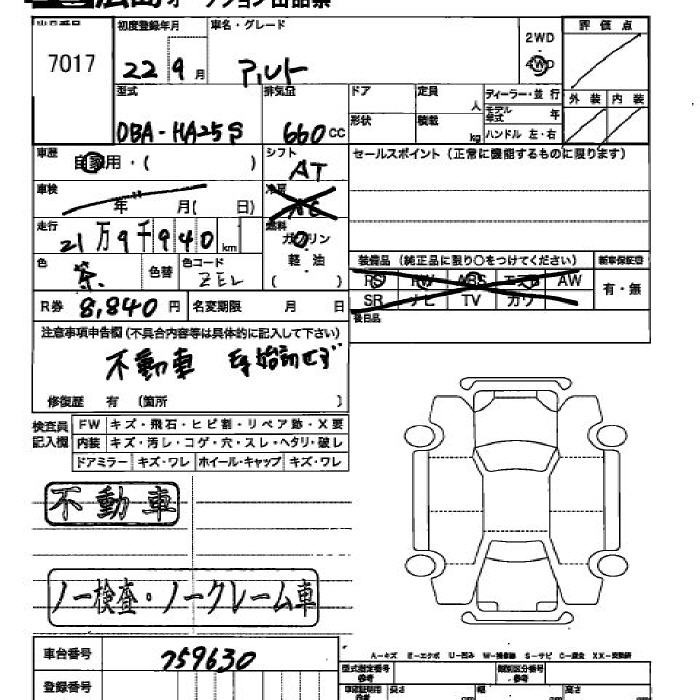 広島オークション出品票
出品番号 初度登録年月 車名・グレード 2WD 評価点
7017 22 9月 アルト 4WD
型式 排気量 ドア 定員 人 ディーラー・並行 外装 内装
DBA-HA25S 660cc 形状 積載 kg モデル年式 年
ハンドル 左・右
車歴 自家用・( ) シフト AT セールスポイント(正常に機能するものに限ります)
車検 年 月( 日) 冷房 AC
走行 21万9千940km 燃料 ガソリン
軽油
( )
装備品(純正品に限り○をつけてください) 新車保証書
色 茶 色替 色コード ZEL
PS PW ABS エアB AW 有・無
SR ナビ TV カワ
R券 8,840円 名変期限 月 日 後日品
注意事項申告欄(不具合内容等は具体的に記入して下さい)
不動車
修復歴 有 (箇所 )
検査員記入欄 FW キズ・飛石・ヒビ割・リペア跡・X要
内装 キズ・汚レ・コゲ・穴・スレ・ヘタリ・破レ
ドアミラー キズ・ワレ ホイール・キャップ キズ・ワレ
不動車
ノー検査・ノークレーム車
車台番号 759630
登録番号
A-キズ E-エクボ U-凹み W-補修跡 S-サビ C-腐食 XX-交換済
型式指定番号 参考 類別区分番号 参考
車庫証明用 参考 長さ 幅 高さ